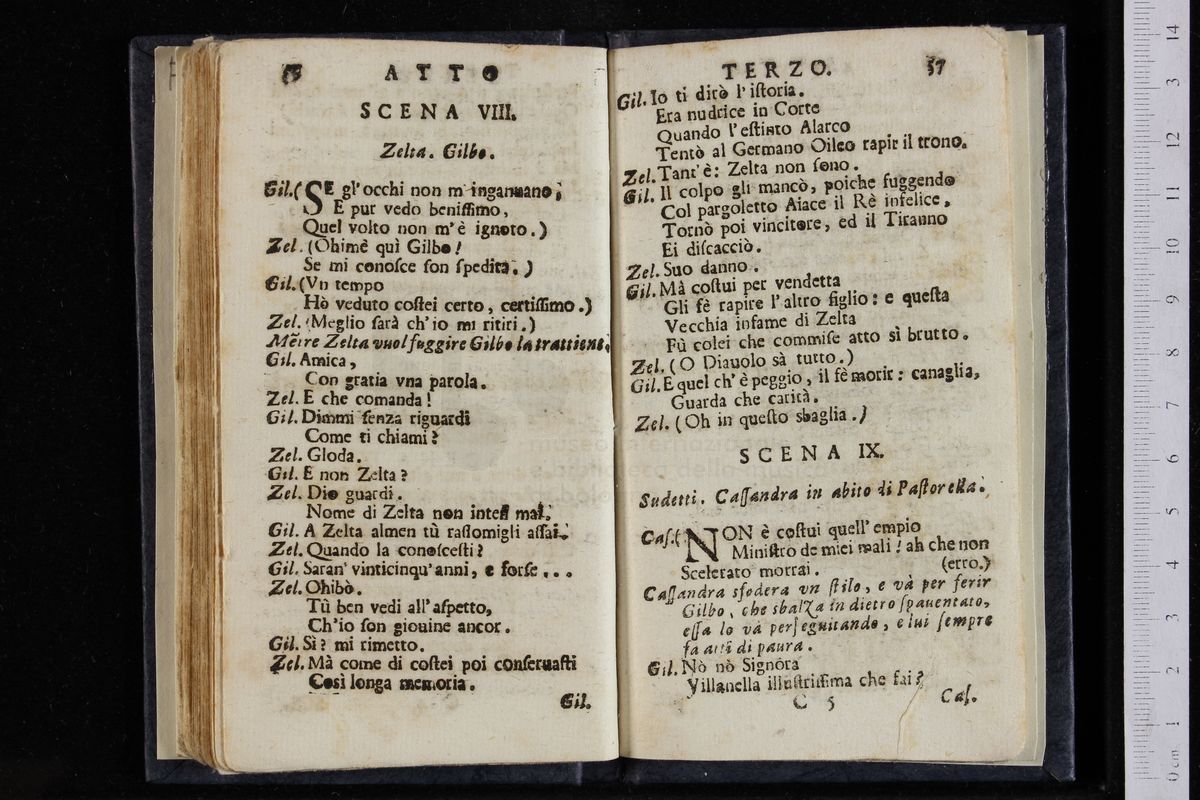 ATTO
SCENA VIII.
Zelta. Gilbo.
Gil. (SE gl'occhi non m'ingannano;
E pur vedo beniſſimo,
Quel volto non m'è ignoto.)
Zel. (Ohimè quì Gilbo!
Se mi conoſce ſon ſpedita.)
Gil. (Vn tempo
Hò veduto coſtei certo, certiſſimo.)
Zel. (Meglio ſarà ch'io mi ritiri.)
Mẽtre Zelta vuol fuggire Gilbo la trattiene.
Gil. Amica,
Con gratia vna parola.
Zel. E che comanda!
Gil. Dimmi ſenza riguardi
Come ti chiami?
Zel. Gloda.
Gil. E non Zelta?
Zel. Dio guardi.
Nome di Zelta non inteſi mai.
Gil. A Zelta almen tù raſſomigli aſſai.
Zel. Quando la conoſceſti?
Gil. Saran' vinticinqu'anni, e forſe...
Zel. Ohibò.
Tù ben vedi all'aſpetto,
Ch'io ſon giouine ancor.
Gil. Sì? mi rimetto.
Zel. Mà come di coſtei poi conſeruaſti
Così longa memoria.
Gil.
TERZO. 57
Gil. Io ti dirò l'iſtoria.
Era nudrice in Corte
Quando l'eſtinto Alarco
Tentò al Germano Oileo rapir il trono.
Zel. Tant'è: Zelta non ſono.
Gil. Il colpo gli mancò, poiche fuggendo
Col pargoletto Aiace il Rè infelice,
Tornò poi vincitore, ed il Tiranno
Ei diſcacciò.
Zel. Suo danno.
Gil. Mà coſtui per vendetta
Gli fè rapire l'altro figlio: e queſta
Vecchia infame di Zelta
Fù colei che commiſe atto sì brutto.
Zel. (O Diauolo sà tutto.)
Gil. E quel ch'è peggio, il fè morir: canaglia,
Guarda che carità.
Zel. (Oh in queſto sbaglia.)
SCENA IX.
Sudetti. Caſſandra in abito di Paſtorella.
Caſ. (NON è coſtui quell'empio
Miniſtro de miei mali! ah che non
Scelerato morrai. (erro.)
Caſſandra sfodera vn ſtilo, e và per ferir
Gilbo, che sbalza in dietro ſpauentato,
eſſa lo và perſeguitando, e lui ſempre
fa atti di paura.
Gil. Nò nò Signora
Villanella illuſtriſſima che fai?
C 5 Caſ.
0 cm 1 2 3 4 5 6 7 8 9 10 11 12 13 14